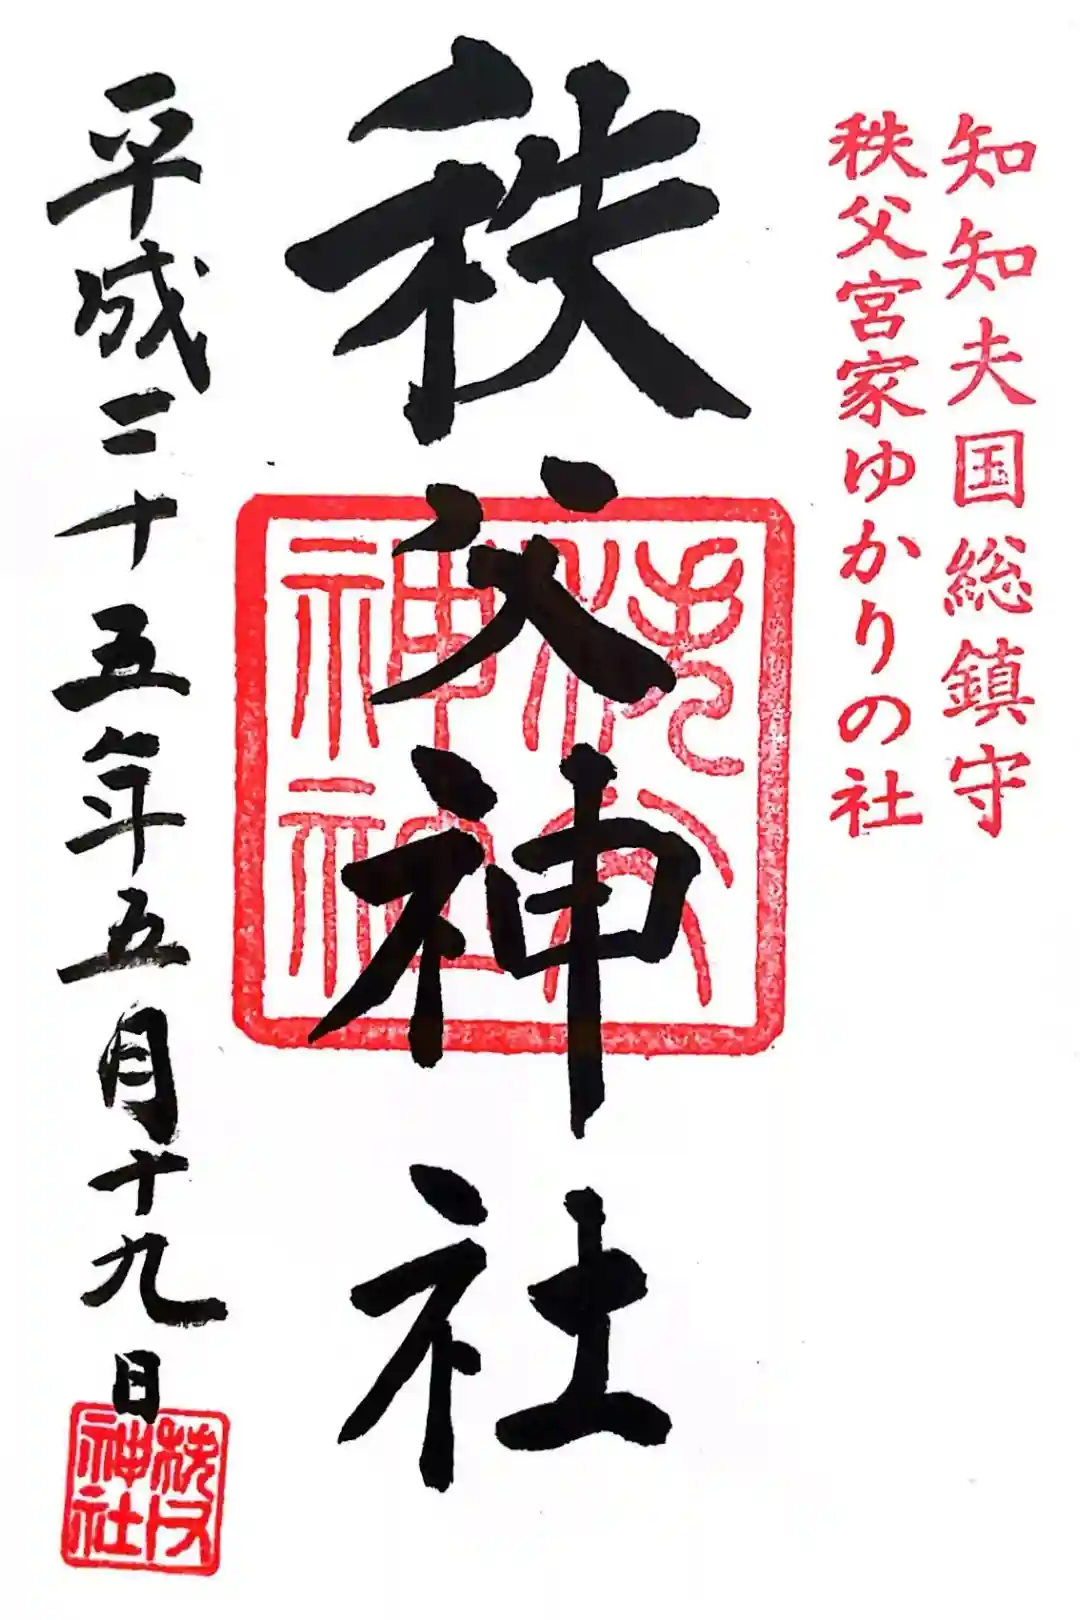 知知夫国総鎮守
秩父宮家ゆかりの社
秩父神社
秩父神社
平成二十五年五月十九日
秩父神社